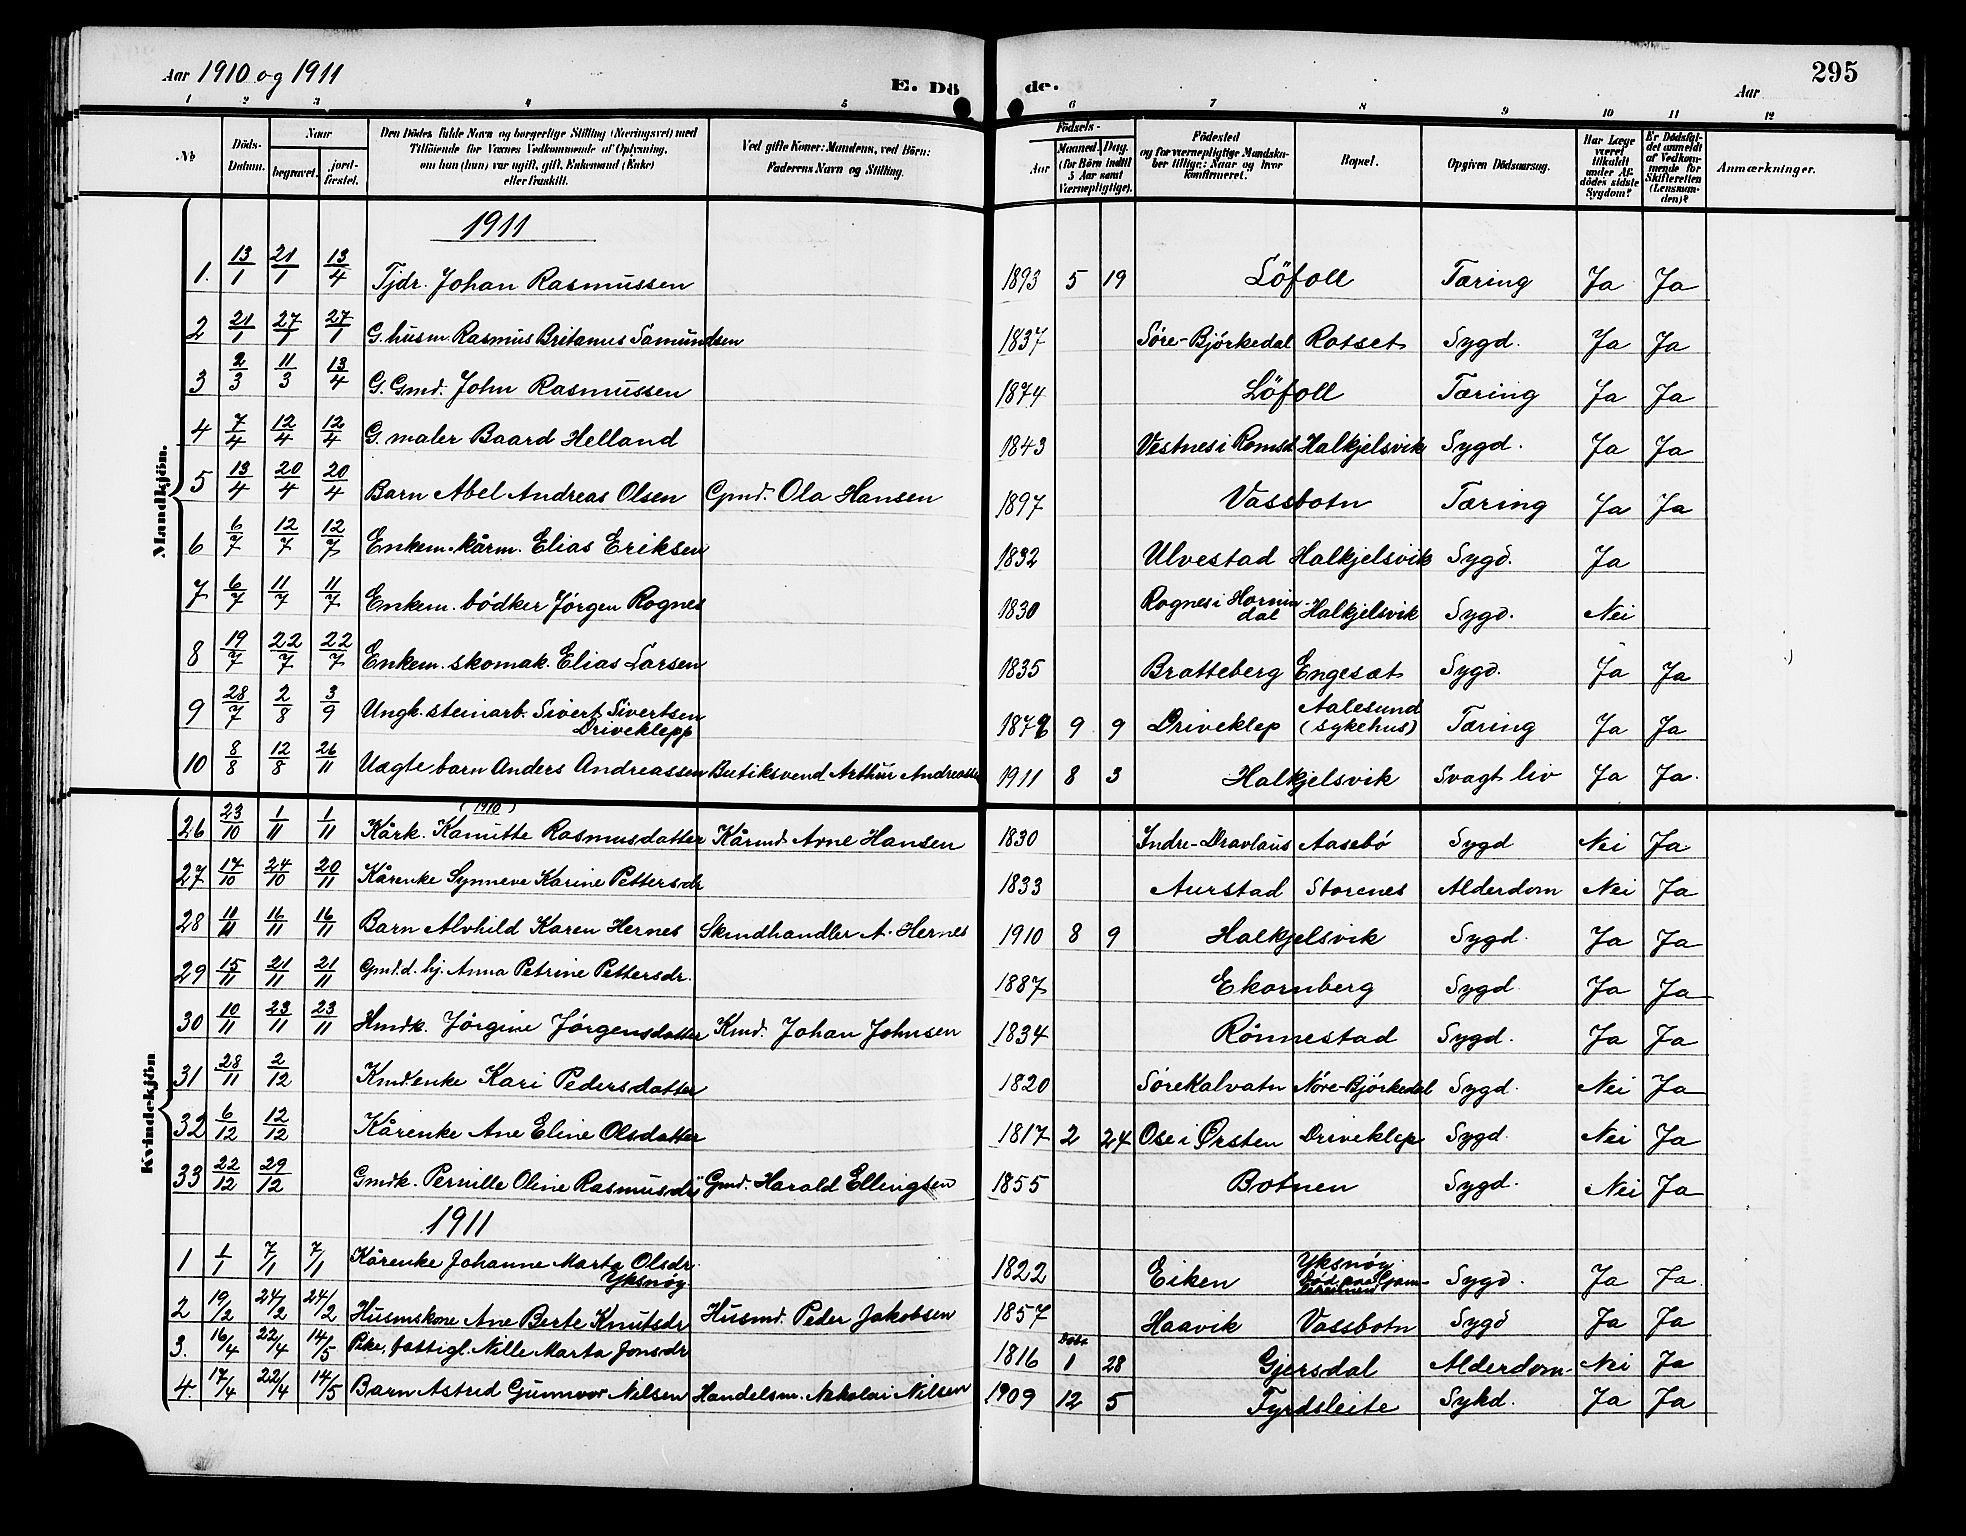 Aar 1910 og 1911 E. Dö de. Aar 295
1 2 3 4 5 6 7 8 9 10 11 12
No Döds-Datum. Naar begravet. jordfæstet. Den Dödes fulde Navn og borgerlige Stilling (Næringsvei) med Tilföiende for Voxnes Vedkommende af Oplysning, om han (hun) var ugift, gift, Enkemand (Enke) eller fraskilt. Ved gifte Koner: Mandens, ved Börn: Faderens Navn og Stilling. Födsels- Aar Maaned. Dag. (for Börn indtil 5 Aar samt Værnepligtige). Födested og for værnepligtige Mandskaber tillige: Naar og hvor konfirmeret. Bopæl. Opgiven Dödsaarsag. Har Læge været tilkaldt under Afdödes sidste Sygdom? Er Dödsfaldet anmeldt af Vedkommende for Skifteretten (Lensmanden)? Anmærkninger.
Mandkjön.
1911
1. 13/1 21/1 13/4 Tjdr. Johan Rasmussen 1893 5 19 Löfoll Tæring Ja Ja
2 21/1 27/1 27/1 G. husm. Rasmus Britanus Samundsen 1837 Søre-Bjørkedal Rotset Sygd. Ja Ja
3 2/3 11/3 13/4 G. Gmd. John Rasmussen 1874 Löfoll Tæring Ja Ja
4 7/4 12/4 12/4 G. maler Baard Helland 1843 Vestnes i Romsd. Halkjelsvik Sygd. Ja Ja
5 13/4 20/4 20/4 Barn Abel Andreas Olsen Gmd. Ola Hansen 1897 Vassbotn Tæring Ja Ja
6 6/7 12/7 12/7 Enkem. kårm. Elias Eriksen 1832 Ulvestad Halkjelsvik Sygd. Ja
7 6/7 11/7 11/7 Enkem. bödker Jørgen Rognes 1830 Rognes i Hornindal Halkjelsvik Sygd. Nei
8 19/7 22/7 22/7 Enkem. skomak. Elias Larsen 1835 Bratteberg Engesæt Sygd. Ja Ja
9 28/7 2/8 3/9 Ungk. steinarb. Sivert Sivertsen Driveklepp 9 9 Driveklep Aalesund (sykehus) Tæring Ja Ja
10 8/8 12/8 26/11 Uægte barn Anders Andreassen Butiksvend Arthur 1911 8 3 Halkjelsvik Svagt liv Ja Ja.
Kvindekjön
26 23/10 1/11 1/11 (1910) Kårk. Kanutte Rasmusdatter Kårmd. Arne Hansen 1830 Indre-Dravlaus Aasebö Sygd Nei Ja
27 17/10 24/10 20/11 Kårenke Synneve Karine Pettersdr 1833 Aurstad Storenes Alderdom Nei Ja
28 11/11 16/11 16/11 Barn Alvhild Karen Hernes Skindhandler A. Hernes 1910 8 9 Halkjelsvik Sygd. Ja Ja
29 15/11 21/11 21/11 Gmd.d. hj. Anna Petrine Pettersdr. 1887 Ekornberg Sygd Ja Ja
30 10/11 23/11 23/11 Hmdk. Jørgine Jørgensdatter Kmd. Johan Johnsen 1834 Rönnestad Sygd. Ja Ja
31 28/11 2/12 Kmdenke Kari Pedersdatter 1820 Søre Kalvatn Nöre-Bjørkedal Sygd. Nei Ja
32 6/12 12/12 Kårenke Ane Eline Olsdatter 1817 2 24 Ose i Ørsten Driveklep Sygd. Nei Ja
33 22/12 29/12 Gmdk. Pernille Oline Rasmusdr Gmd. Harald Ellengsen 1855 Botnen Sygd. Nei Ja
1911
1 1/1 7/1 7/1 Kårenke Johanne Marta Olsdr. Yksnøy 1822 Eiken Yksnøy Sygd. Ja Ja.
2 19/2 24/2 24/2 Husmskone Ane Berte Knutsdr Husmd. Peder Jakobsen 1857 Haavik Vassbotn Sygd Ja Ja
3. 16/4 22/4 14/5 Pike, fattigl. Nille Marta Jonsdr 1816 1 28 Gjersdal Alderdom Nei Ja
4. 17/4 22/4 14/5 Barn Astrid Gunnvor Nilsen Handelsm. Nikolai Nilsen 1909 12 5 Fyrdsleite Sykd. Ja Ja